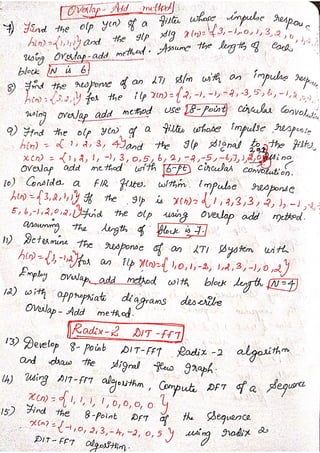 Overlap-Add method
7) Find the o/p y(n) of a filter whose impulse response
h(n)={1,1,1} and the i/p sig x(n)={3,-1,0,1,3,2,0,1,2,
using Overlap-add method. Assume the length of each
block N is 6
8) Find the response of an LTI s/m with an impulse response
h(n)={3,2,1} for the i/p x(n)={2,-1,-1,-2,-3,5,6,-1,2,
using overlap add method use 8-point circular convolution
9) Find the o/p y(n) of a filter whose impulse response
h(n) = {1,2,3,4} and the i/p signal to the filter
x(n) = {1,2,1,-1,3,0,5,6,2,-2,-5,-6,7,1,2,0} using
Overlap add method with 6-pt circular convolution.
10) Consider a FIR filter within impulse response
h(n)={3,2,1,1} If the i/p is x(n)={1,2,3,3,2,1,-1,
5,6,-1,2,0,2,1} find the o/p using overlap add method.
assuming the length of block is 7.
11) Determine the response of an LTI system with
h(n)={1,-1,2} for an i/p x(n)={1,0,1,-2,1,2,3,-1,0,2}
Employ overlap add method with block length N=4
12) With appropriate diagrams describe
Overlap-Add method.
Radix-2 DIT-FFT
13) Develop 8-point DIT-FFT Radix-2 algorithm
and draw the signal flow graph.
14) Using DIT-FFT algorithm, compute DFT of a sequence
x(n)={1,1,1,1,0,0,0,0}
15) Find the 8-point DFT of the sequence
x(n)={-1,0,2,3,-4,-2,0,5} using radix 2
DIT-FFT algorithm.